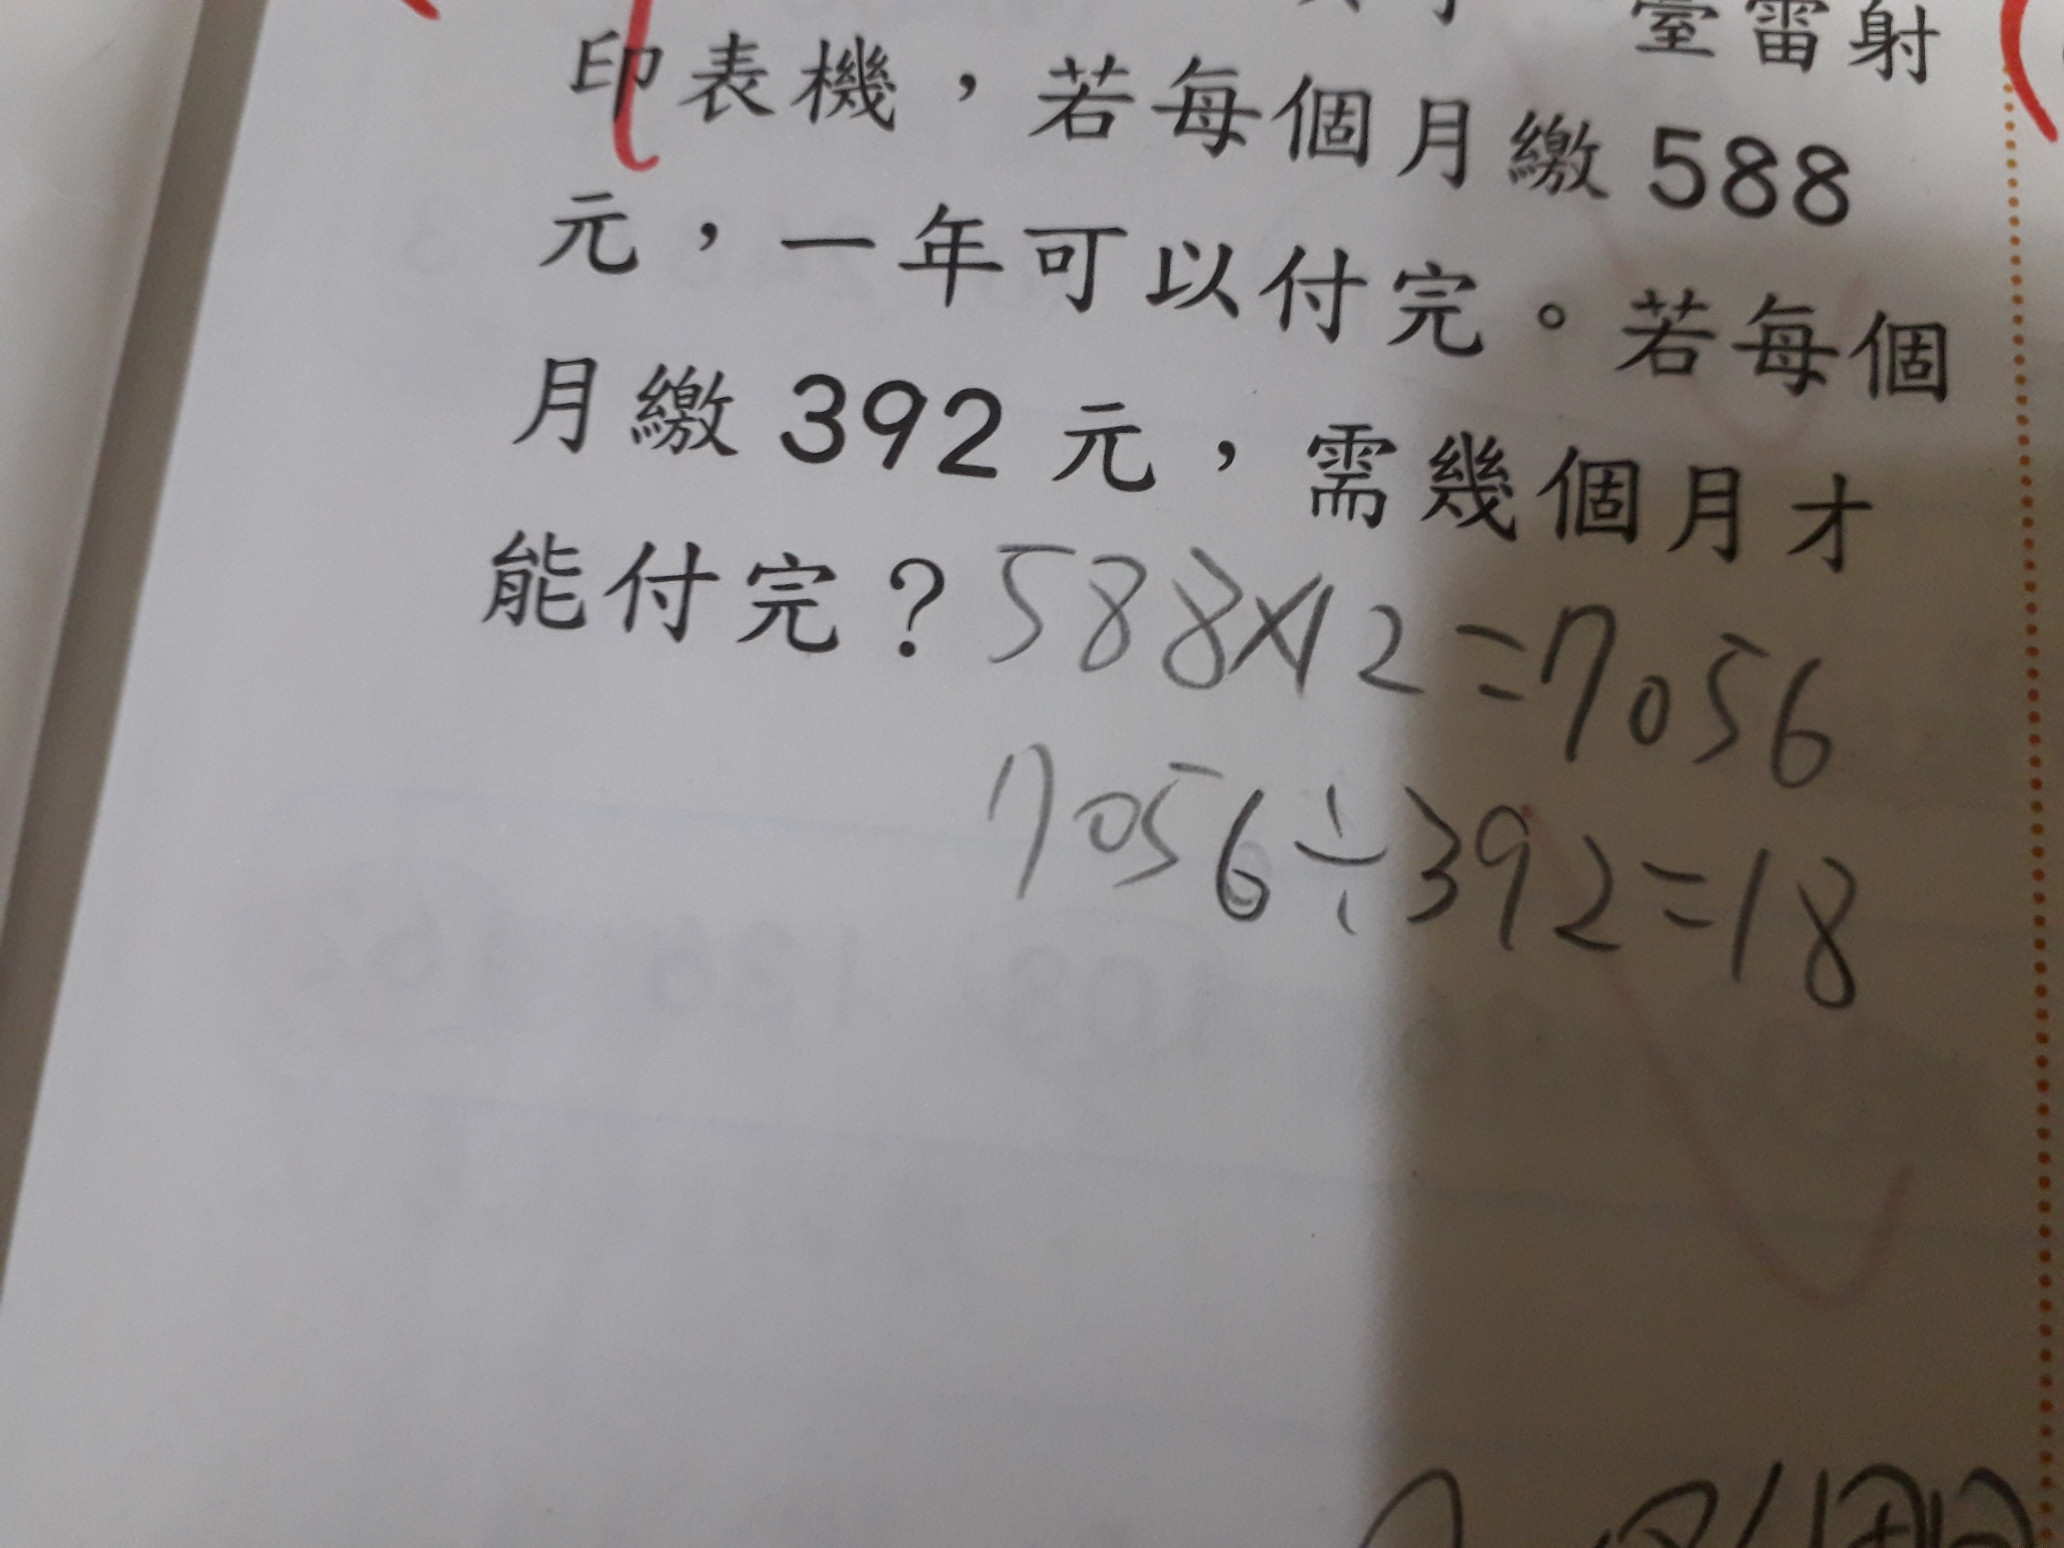 臺雷射
印表機，若每個月繳588
元，一年可以付完。若每個
月繳392元，需幾個月才
能付完？588×12=7056
7056÷392=18